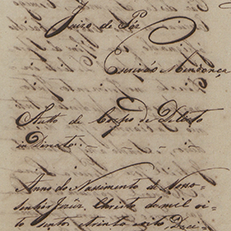 Juizo de Paz
Escrivão Mendonça
Auto de Corpo de Delicto
indirecto
Anno do Nascimento de Nosso
Senhor Jesus Christo de mil oi
to centos e trinta e oito